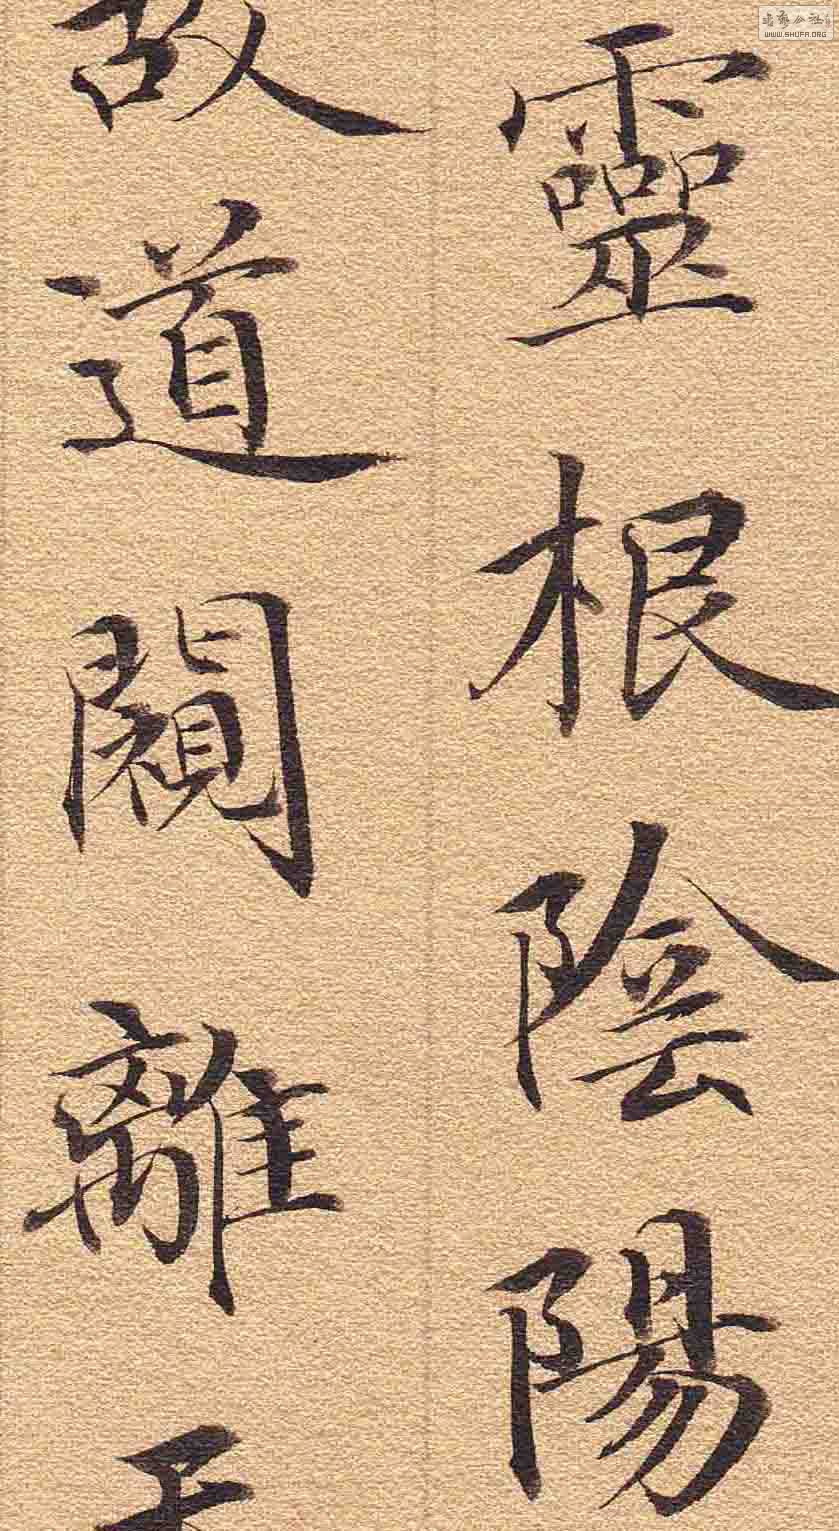 靈根陰陽
故道闚離
書藝公社
WWW.SHUFA.ORG